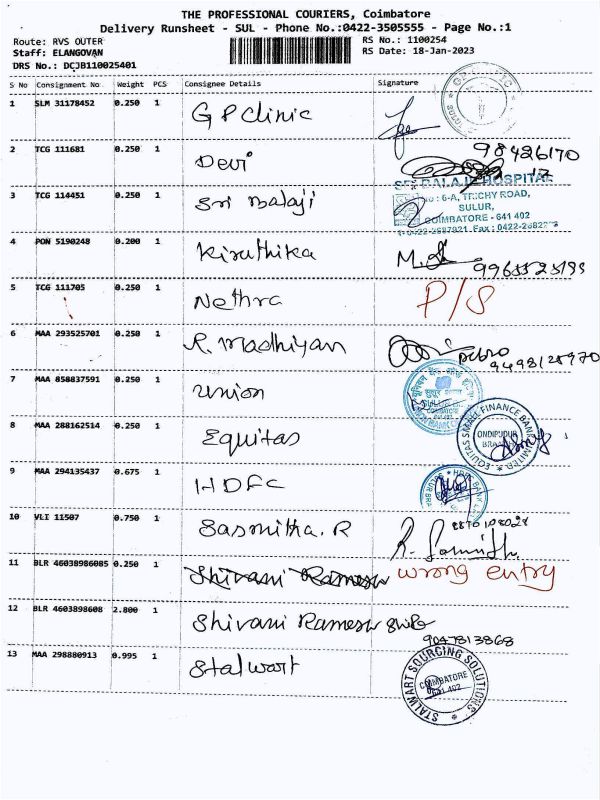 THE PROFESSIONAL COURIERS, Coimbatore
Delivery Runsheet - SUL - Phone No.:0422-3505555 - Page No.:1
Route: RVS OUTER
RS No.: 1100254
Staff: ELANGOVAN
RS Date: 18-Jan-2023
DRS No.: DCJB110025401
S No Consignment No Weight PCS Consignee Details Signature
1 SLM 31178452 0.250 1 G P Clinic
2 TCG 111681 0.250 1 Devi 98426170
17
3 TCG 114451 0.250 1 Sri Balaji
SRI BALAJI HOSPITAL
No : 6-A, TRICHY ROAD,
SULUR,
COIMBATORE - 641 402
4 PON 5190248 0.200 1 Kiruthika
5 TCG 111705 0.250 1 Nethra P/S
6 MAA 293525701 0.250 1 R. Madhiyan
9498128970
7 MAA 858837591 0.250 1 Union
8 MAA 288162514 0.250 1 Equitas
EQUITAS SMALL FINANCE BANK LIMITED
ONDIPUDUR
BRANCH
9 MAA 294135437 0.675 1 HDFC
10 VLI 11507 0.750 1 Sasmitha. R
8870108028
11 BLR 46038986085 0.250 1 Shivani Ramesh wrong entry
12 BLR 4603898608 2.800 1 Shivani Ramesh
9047813868
13 MAA 298880913 0.995 1 Stalwart
STALWART SOURCING SOLUTIONS
COIMBATORE
641 402